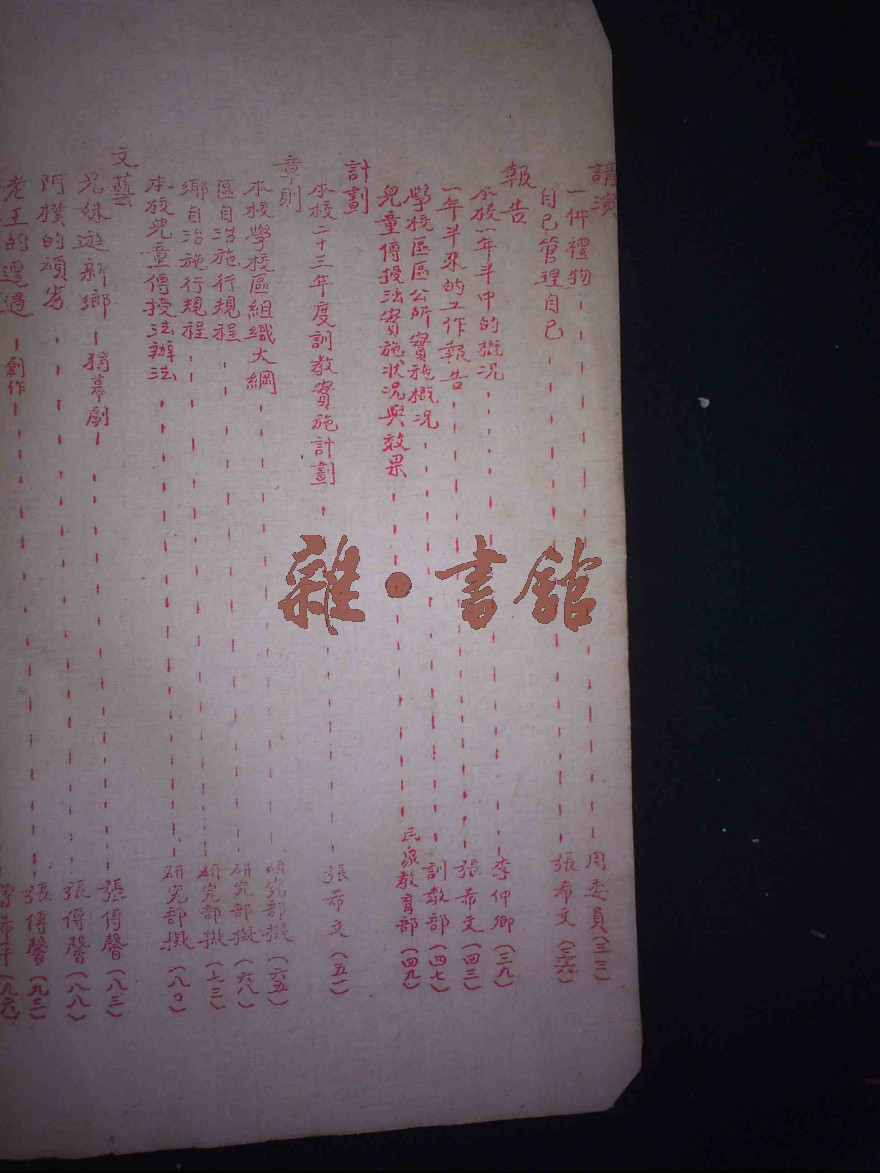 講演
一件禮物 周委員(三三)
自己管理自己 張希文(三六)
報告
本校一年半中的概況 李仲卿(三九)
一年半來的工作報告 張希文(四三)
學校區區公所實施概況 訓教部(四七)
兒童傳授法實施狀况與效果 民衆教育部(四九)
計劃
本校二十三年度訓教實施計劃 張希文(五一)
章則
本校學校區組織大綱 研究部擬(六五)
區自治施行規程 研究部擬(六八)
鄉自治施行規程 研究部擬(七三)
本校兒童傳授法辦法 研究部擬(八〇)
文藝
兄妹遊新鄉—獨幕劇— 張傳馨(八三)
阿樸的 張傳馨(八八)
老王的遭遇—創作— 張傳馨(九三)
雜·書館